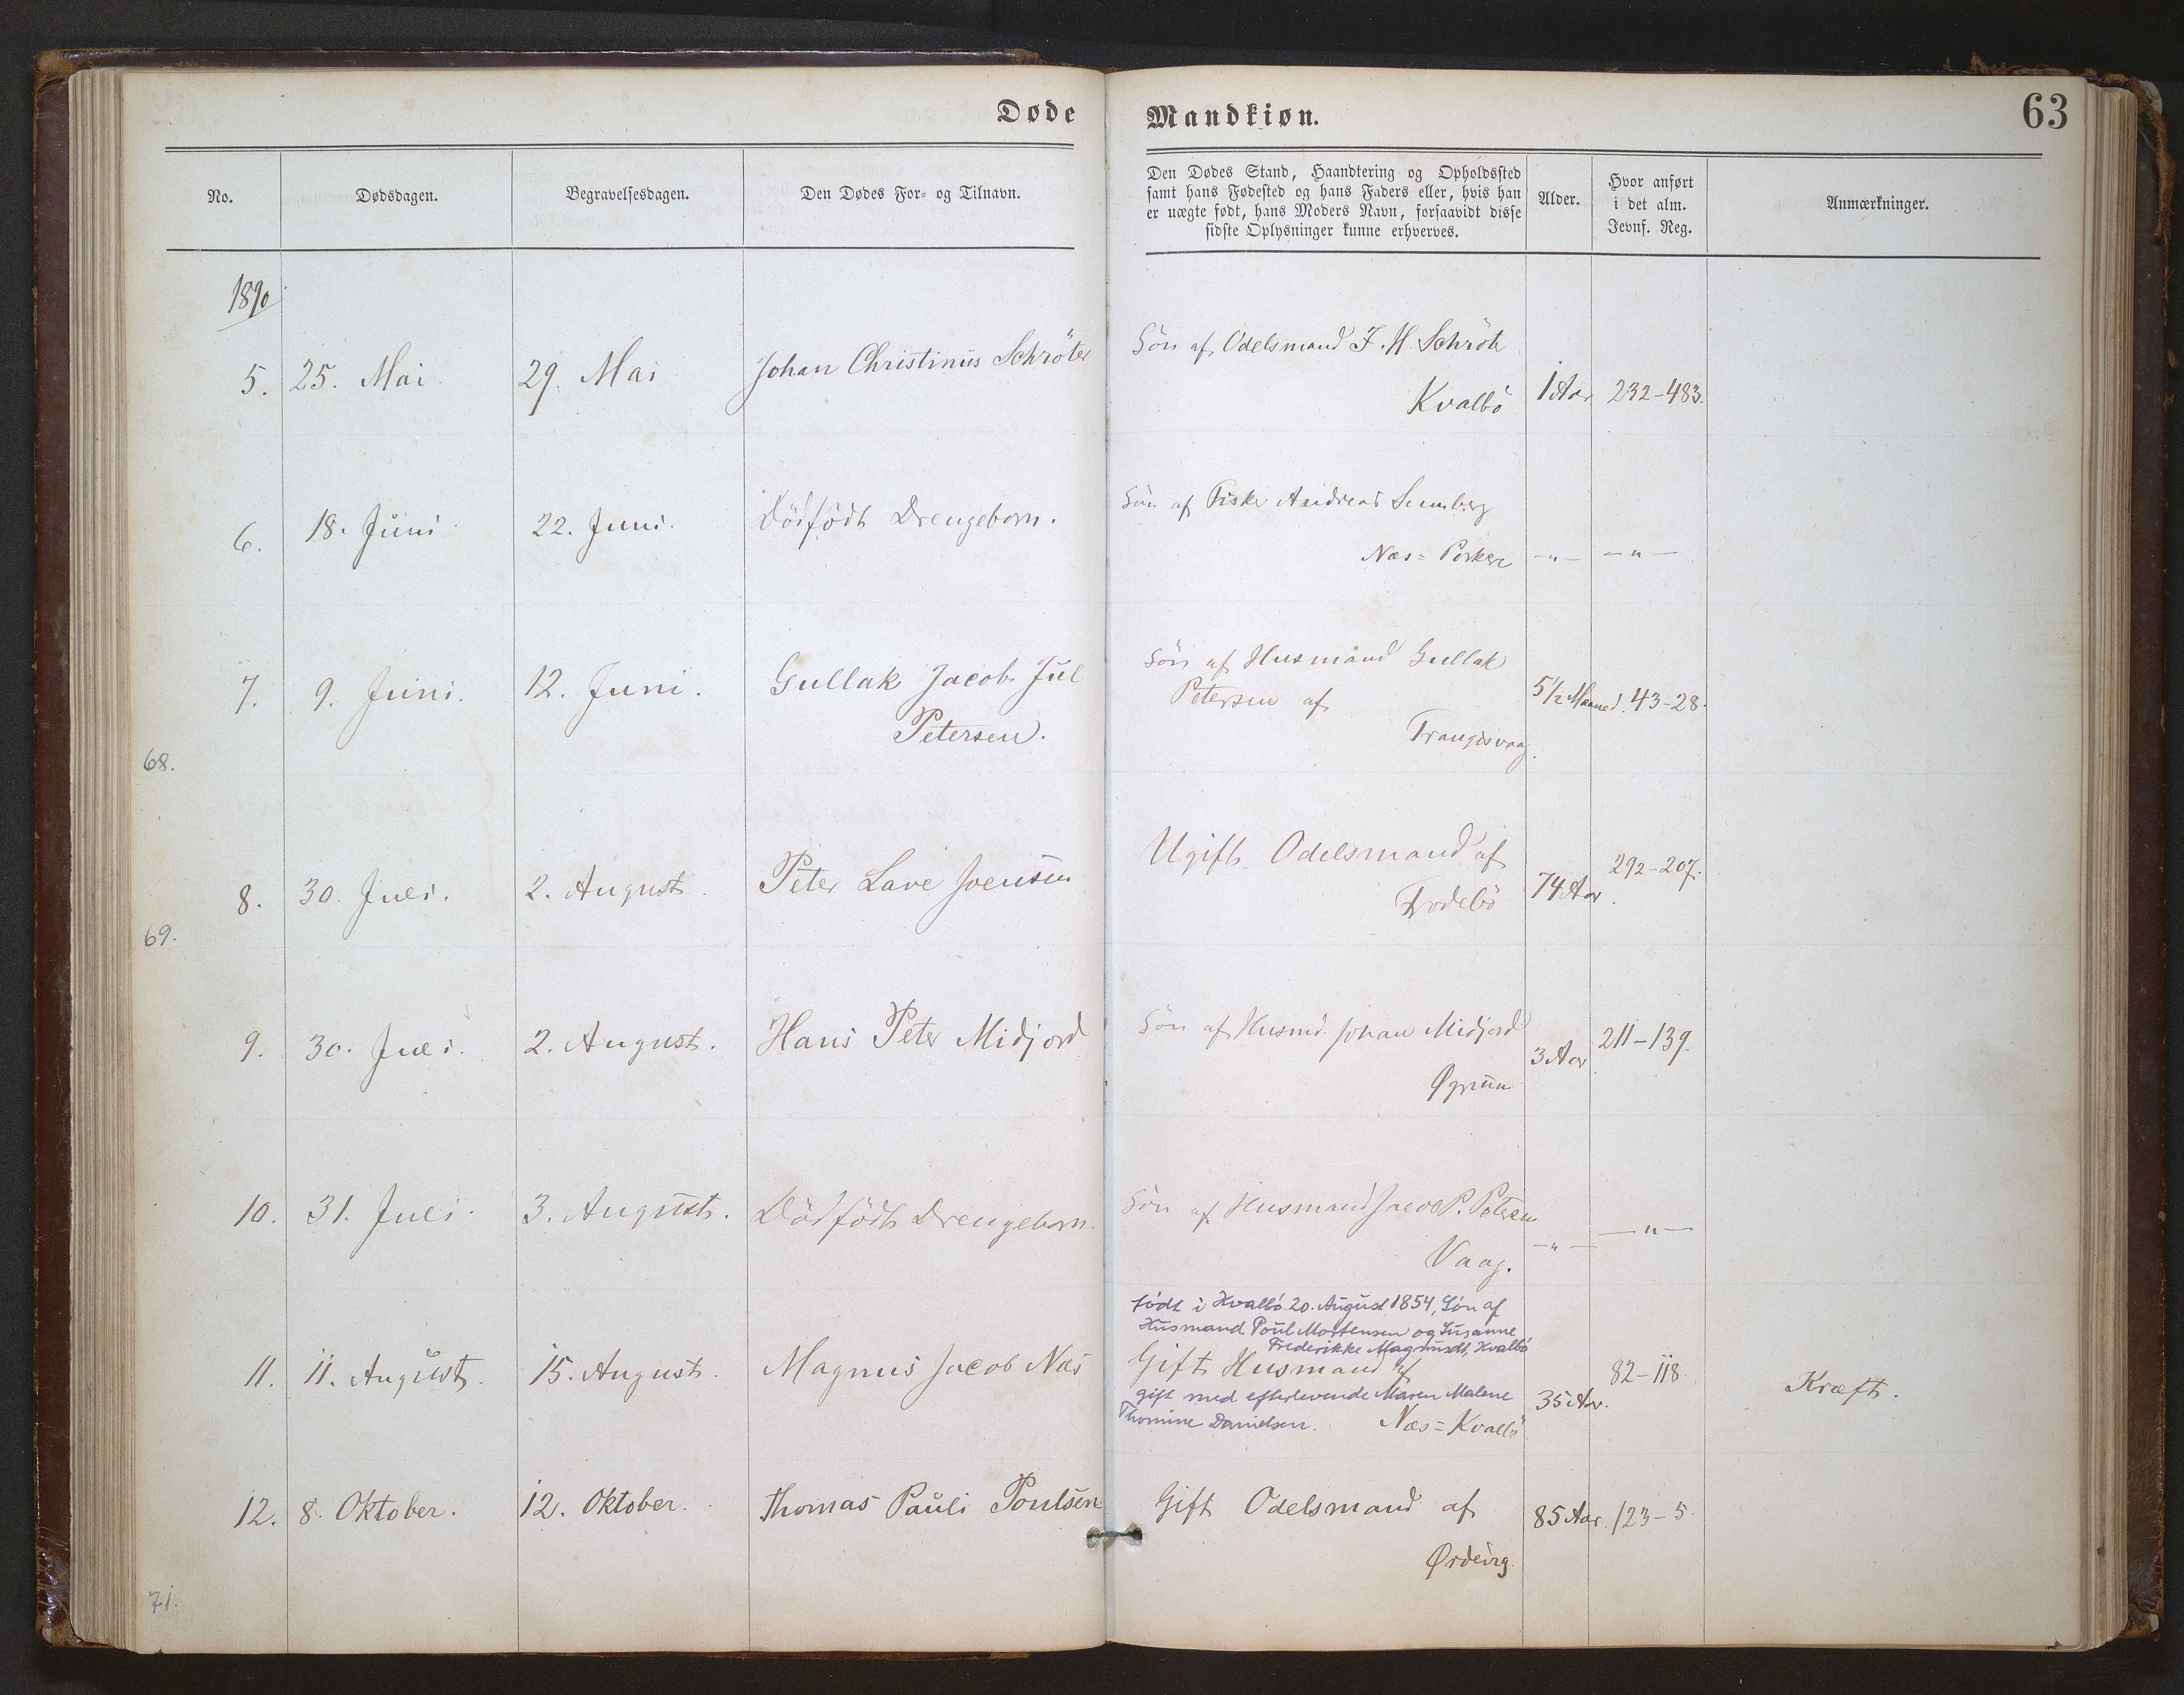 Døde Mandkiøn. 63
No. Dødsdagen. Begravelsesdagen. Den Dødes For- og Tilnavn.
Den Dødes Stand, Haandtering og Opholdssted
samt hans Fødested og hans Faders eller, hvis han
er uægte født, hans Moders Navn, forsaavidt disse
sidste Oplysninger kunne erhverves.
Alder.
Hvor anført
i det alm.
Jevnf. Reg.
Anmærkninger.
1890
5. 25. Mai. 29. Mai Johan Christinus Schröter
Sön af Odelsmand J. H. Schröter
Kvalbö 1 Aar 232-483.
6. 18. Juni 22. Juni. Dödfödt Drengebarn.
Sön af Fisker Andreas Sumberg
Næs = Porkere —"— —"—
7. 9. Juni. 12. Juni. Gullak Jacob Jul
Petersen.
Sön af Husmand Gullak
Petersen af
Trangisvaag.
5 1/2 Maaned. 43-28.
68.
8. 30. Juli. 2. August. Peter Lave Joensen
Ugift Odelsmand af
Frodebö 74 Aar. 292-207.
69.
9. 30. Juli. 2. August. Hans Peter Midjord
Sön af Husmd. Johan Midjord
Øgnun 3 Aar 211-139.
10. 31. Juli. 3. August. Dödfödt Drengebarn.
Sön af Husmand Jacob P. Petersen
Vaag. —"— —"—
født i Hvalbö 20. August 1854, Sön af
Husmand Poul Mortensen og Susanne
Frederikke Magnusdt, Hvalbö
11. 11. August. 15. August. Magnus Jacob Næs
Gift Husmand af
gift med efterlevende Maren Malene
Thomine Danielsen. Næs = Kvalbö
35 Aar. 82-118. Kræft.
12. 8. Oktober. 12. Oktober. Thomas Pauli Poulsen
Gift Odelsmand af
Ørdevig. 85 Aar. 123-5.
71.